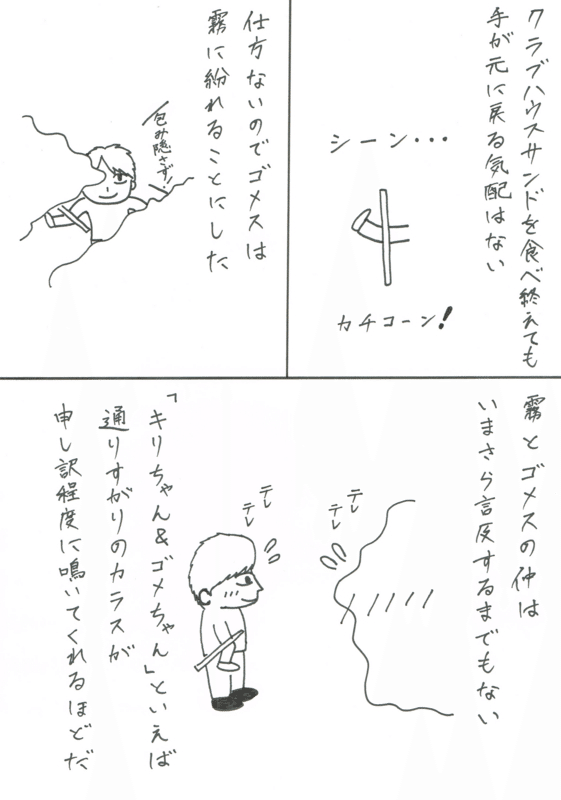 クラブハウスサンドを食べ終えても
手が元に戻る気配はない
シーン・・・
カチコーン！
仕方ないのでゴメスは
霧に紛れることにした
包み隠さず！
霧とゴメスの仲は
いまさら言及するまでもない
テレ
テレ
テレ
テレ
「キリちゃん＆ゴメちゃん」といえば
通りすがりのカラスが
申し訳程度に鳴いてくれるほどだ